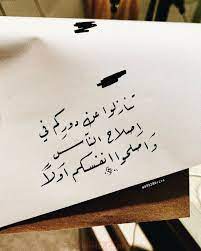 تنازلوا عن دوركم في
إصلاح الناس
وأصلحوا أنفسكم أولاً